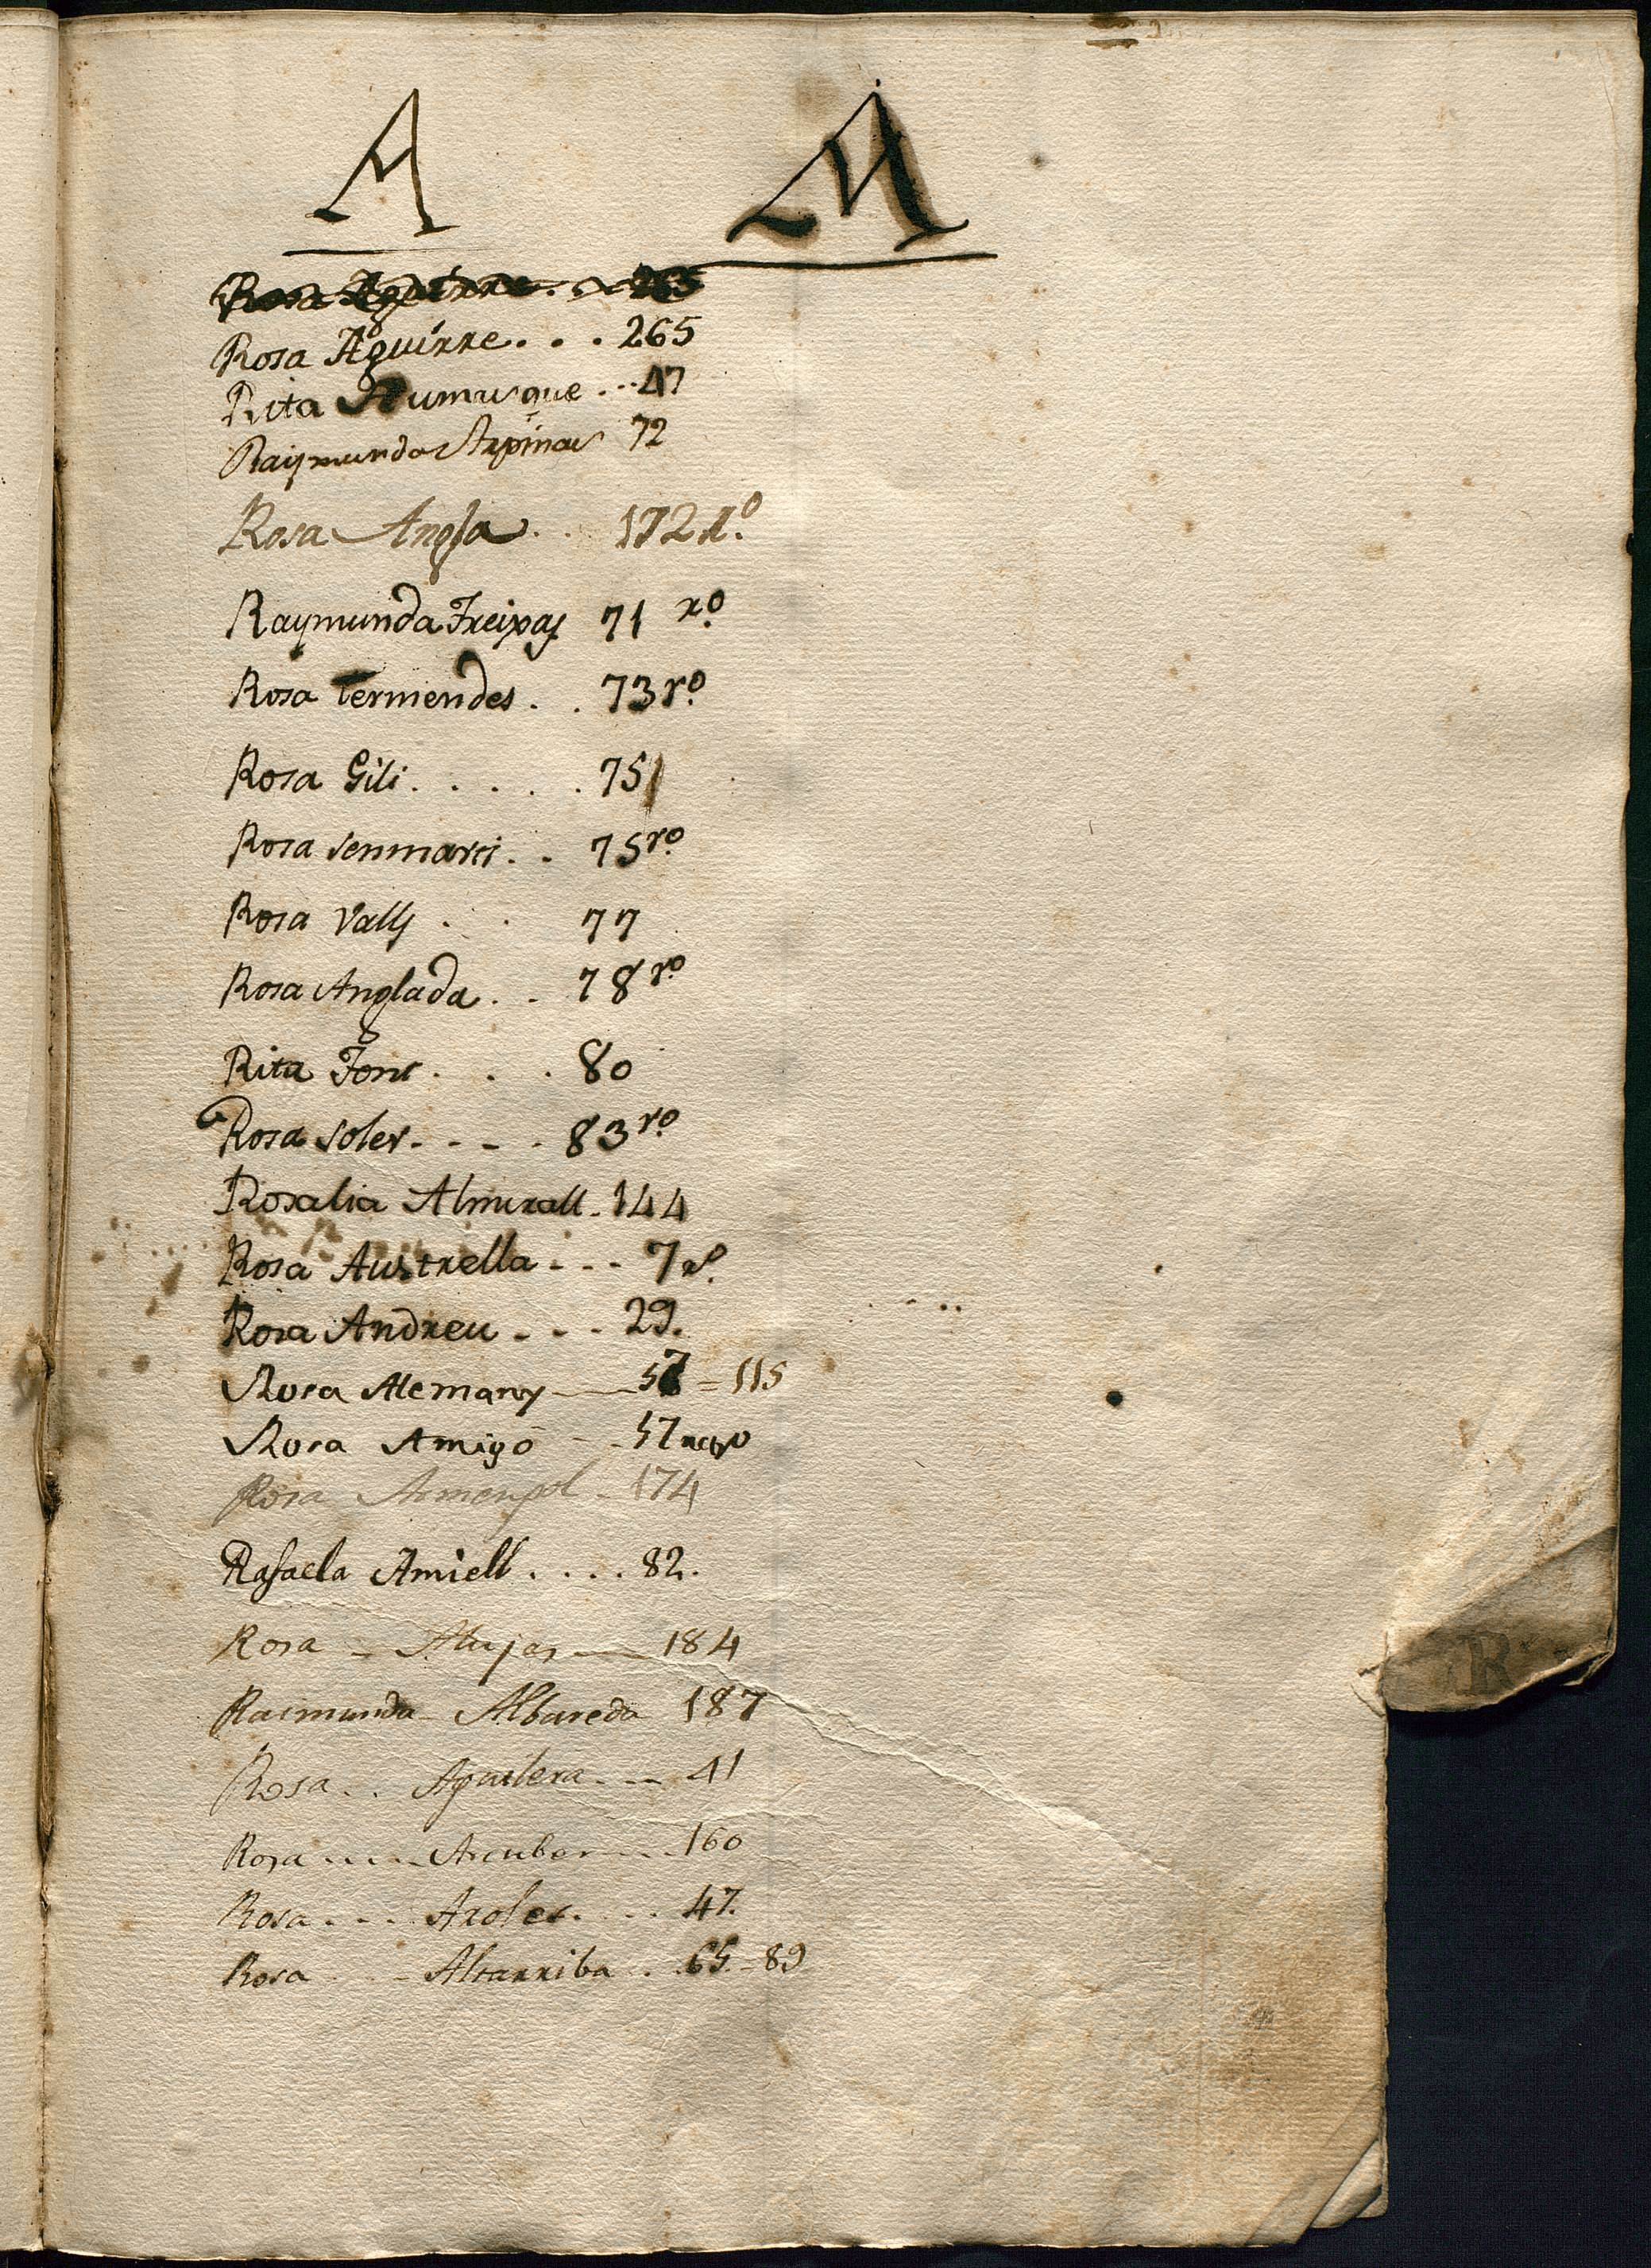 A M
Rosa Aguirre. . . 265
Rosa Aguirre. . . 265
Rita Aumusque . .. 47
Raymunda Arpinas 72
Rosa Angla . . 172 r.º
Raymunda Freixas 71 rº
Rosa Termendes . . 73 rº
Rosa Gili . . . . . 75
Rosa Senmarti . . 75 rº
Rosa Valls . . 77
Rosa Anglada . . 78 rº
Rita Font . . . 80
Rosa Soler . - - . 83 rº
Rosalia Almirall . 144
Rosa Austrella . - - 7 rº
Rosa Andreu . - . 29.
Rosa Alemany — 57 = 115
Rosa Amigó - - 57
Rosa Armengol - 174
Rafaela Amiell . . . . 82.
Rosa - Alujas — 184
Raimunda - Albareda 187
Rosa . . Aguilera . - - 41
Rosa . . . . 160
Rosa . . . Aroles . . . 47.
Rosa . - Altarriba . . 65. - 89
R